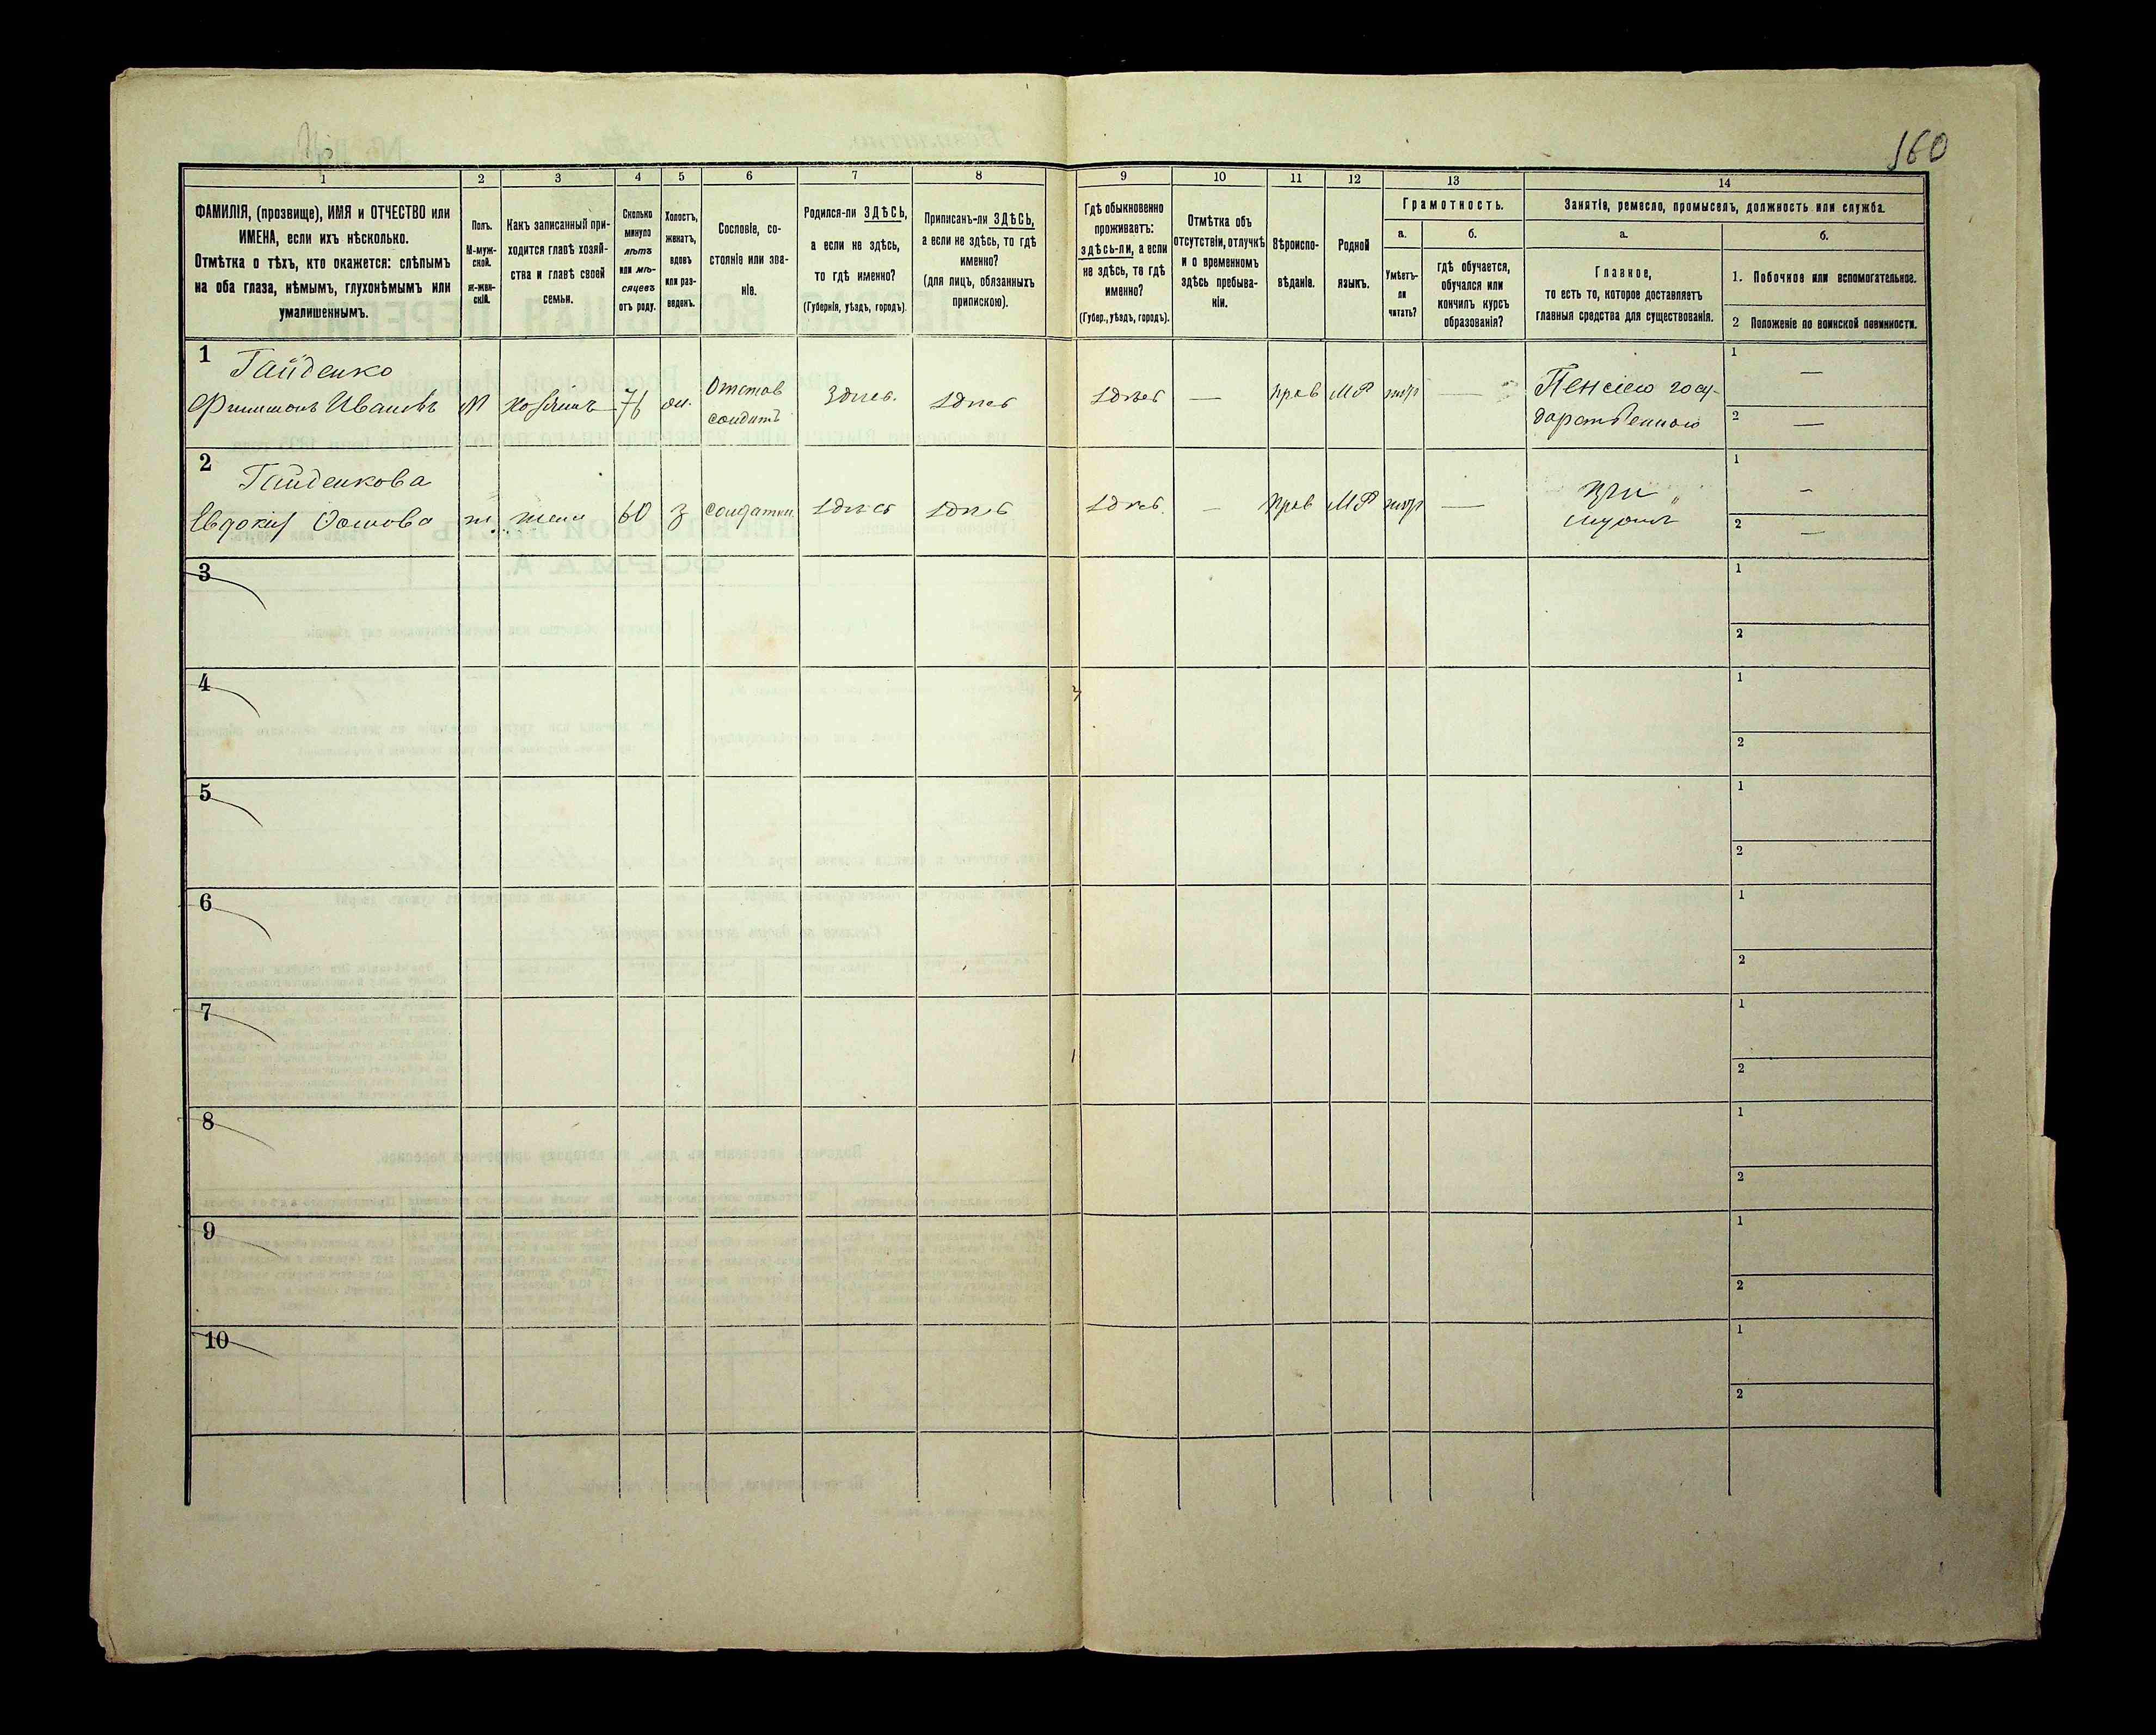 160
1
2
3
4
5
6
7
8
9
10
11
12
13
14
ФАМИЛІЯ, (прозвище), ИМЯ и ОТЧЕСТВО или
ИМЕНА, если ихъ нѣсколько.
Отмѣтка о тѣхъ, кто окажется: слѣпымъ
на оба глаза, нѣмымъ, глухонѣмымъ или
умалишеннымъ.
Полъ.
М-муж-
ской.
ж-жен-
скій.
Какъ записанный при-
ходится главѣ хозяй-
ства и главѣ своей
семьи.
Сколько
минуло
лѣтъ
или мѣ-
сяцевъ
отъ роду.
Холостъ,
женатъ,
вдовъ
или раз-
веденъ.
Сословіе, со-
стояніе или зва-
ніе.
Родился-ли ЗДѢСЬ,
а если не здѣсь,
то гдѣ именно?
(Губернія, уѣздъ, городъ).
Приписанъ-ли ЗДѢСЬ,
а если не здѣсь, то гдѣ
именно?
(для лицъ, обязанныхъ
припискою).
Гдѣ обыкновенно
проживаетъ:
здѣсь-ли, а если
не здѣсь, то гдѣ
именно?
(Губер., уѣздъ, городъ).
Отмѣтка объ
отсутствіи, отлучкѣ
и о временномъ
здѣсь пребыва-
ніи.
Вѣроиспо-
вѣданіе.
Родной
языкъ.
Грамотность.
а.
Умѣетъ-
ли
читать?
б.
гдѣ обучается,
обучался или
кончилъ курсъ
образованія?
Занятіе, ремесло, промыселъ, должность или служба.
а.
Главное,
то есть то, которое доставляетъ
главныя средства для существованія.
б.
1. Побочное или вспомогательное.
2 Положеніе по воинской повинности.
1
Гайденко
Филимонъ Ивановъ
М
хозяинъ
76
Отстав
солдатъ
Здѣсь
Здѣсь
Здѣсь
—
прав
МР
—
Пенсіею госу-
дарственною
1 —
2 —
2
Гайденкова
Евдокія
ж
жена
60
з
солдатка
Здѣсь
Здѣсь
Здѣсь
—
прав
МР
—
при
мужѣ
1 —
2 —
3
1
2
4
1
2
5
1
2
6
1
2
7
1
2
8
1
2
9
1
2
10
1
2